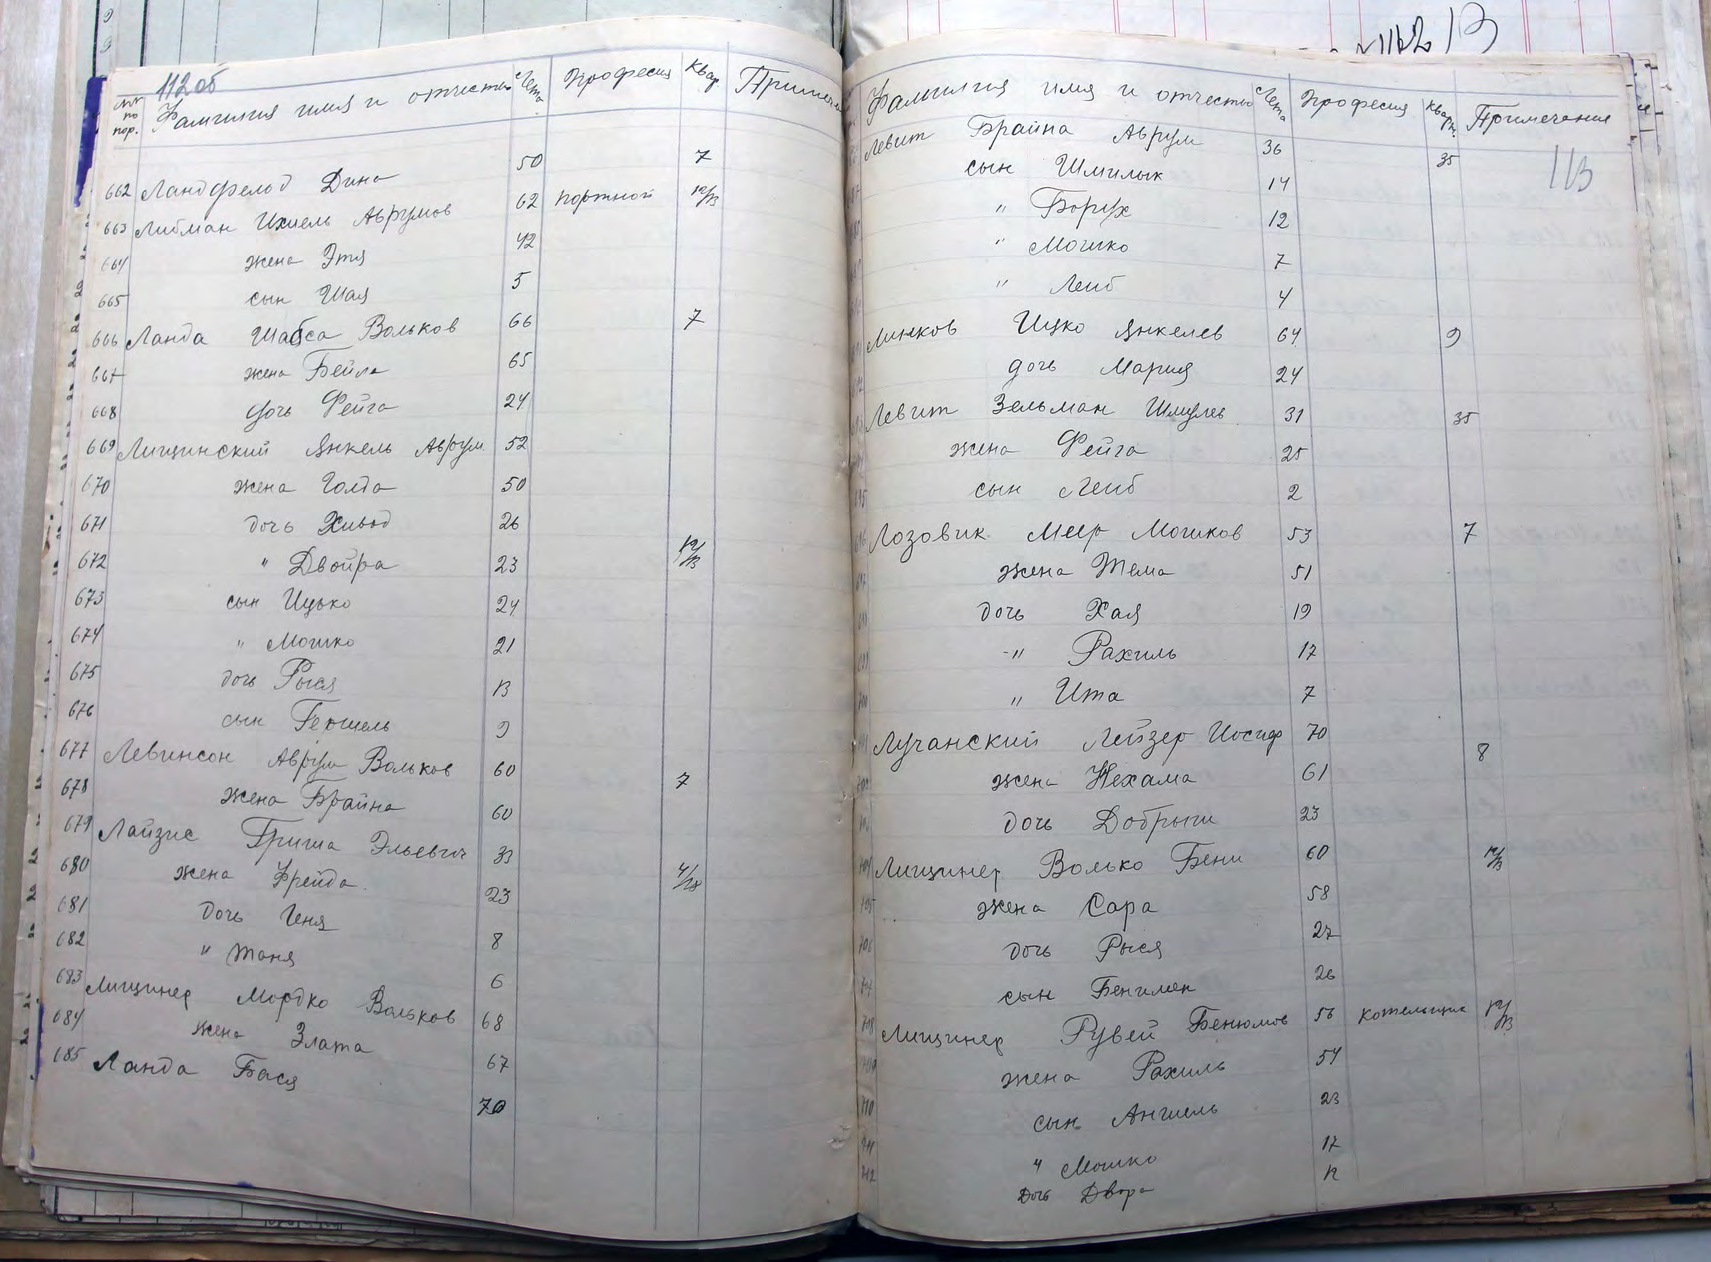 112об
№№ по пор. Фамилия имя и отчество Лета Професия Квар Примечан
662 Ландфелод Дина 50 7
663 Либман Ихиель Аврумов 62 портной 12/13
664 жена Этя 42
665 сын Шая 5
666 Ланда Шабса Вольков 66 7
667 жена Бейла 65
668 дочь Фейга 24
669 Лищинский Янкель Аврум 52
670 жена Голда 50
671 дочь Хивод 26
672 " Двойра 23 12/13
673 сын Ицько 24
674 " Мошко 21
675 дочь Рыся 13
676 сын Гершель 9
677 Левинсон Аврум Вольков 60 7
678 жена Брайна 60
679 Лайзис Гриша Эльевич 33
680 жена Фрейда 23 4/28
681 дочь Геня 8
682 " Таня 6
683 Лищинер Мордко Вольков 68
684 жена Злата 67
685 Ланда Бася 70
1162 13
113
Фамилия имя и отчество Лета Професия Кварт. Примечание
Левит Брайна Аврум 36 35
сын Шмилык 14
" Борух 12
" Мошко 7
" Леиб 4
Линков Ицко Янкелев 64 9
дочь Мария 24
Левит Зельман Шмулев 31 35
жена Фейга 25
сын Леиб 2
Лозовик Меер Мошков 53 7
жена Тема 51
дочь Хая 19
" Рахиль 17
" Ита 7
Лучанский Лейзер Иосиф 70 8
жена Нехама 61
дочь Добрыш 23
Лищинер Волько Бени 60 12/13
жена Сара 58
дочь Рыся 27
сын Бенимен 26
708 Лищинер Рувей Бенюмов 56 котельщик 12/13
жена Рахиль 54
710 сын Аншель 23
711 " Мошко 17
712 Дочь Двора 12